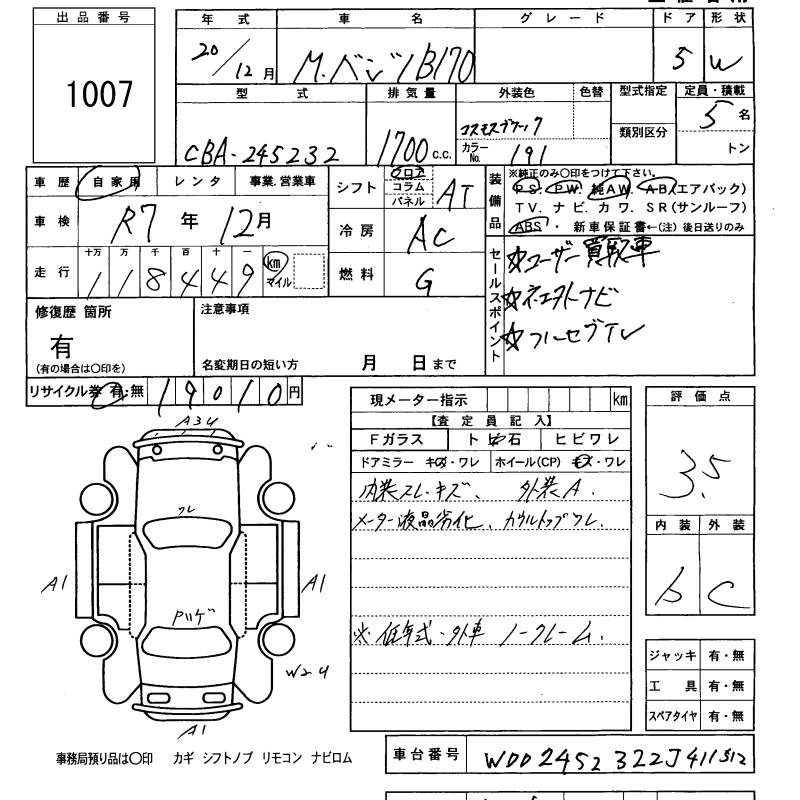 出品番号
1007
年式 車名 グレード ドア 形状
20/12月 M.ベンツB170 5 W
型式 排気量 外装色 色替 型式指定 定員・積載
CBA-245232 1700c.c. コスモスブラック 5名
カラーNo. 191 類別区分 トン
車歴 自家用 レンタ 事業.営業車
車検 R7年 12月
走行 十万 万 千 百 十 一
118449 km マイル
シフト フロア コラム パネル AT
冷房 AC
燃料 G
装備品
※純正のみ〇印をつけて下さい。
PS. PW. 純AW. AB.(エアバック)
TV. ナビ. カワ. SR(サンルーフ)
ABS ・ 新車保証書←(注) 後日送りのみ
セールスポイント
☆ユーザー買取車
☆ネエクトナビ
☆フルセグTV
修復歴 箇所
有
(有の場合は〇印を)
注意事項
名変期日の短い方 月 日まで
リサイクル券 有・無 19010円
現メーター指示 km
【査定員記入】
Fガラス ト ビ 石 ヒビワレ
ドアミラー キズ・ワレ ホイール(CP) キズ・ワレ
内装スレ・キズ、 外装A.
メーター液晶劣化、カウルトップワレ.
※低年式・外車 ノークレーム.
評価点
3.5
内装 外装
b C
A34
ワレ
A1 A1
Pハゲ
W24
A1
ジャッキ 有・無
工具 有・無
スペアタイヤ 有・無
事務局預り品は〇印 カギ シフトノブ リモコン ナビロム
車台番号 WDD2452322J411312